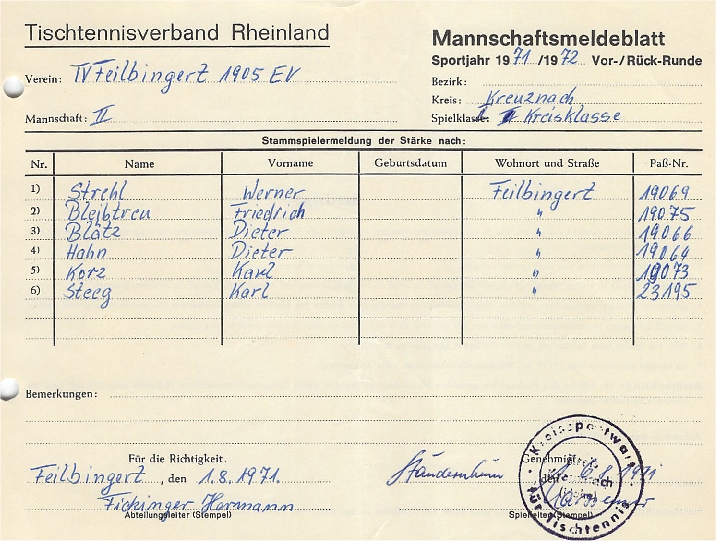 Tischtennisverband Rheinland
Mannschaftsmeldeblatt
Sportjahr 1971/1972 Vor-/Rück-Runde
Verein: TV Feilbingert 1905 EV
Bezirk:
Kreis: Kreuznach
Mannschaft: II
Spielklasse: Kreisklasse
Stammspielermeldung der Stärke nach:
Nr. Name Vorname Geburtsdatum Wohnort und Straße Paß-Nr.
1) Strehl Werner Feilbingert 19069
2) Bleibtreu Friedrich " 19075
3) Blätz Dieter " 19066
4) Hahn Dieter " 19064
5) Korz Karl " 19073
6) Steeg Karl " 23195
Bemerkungen:
Für die Richtigkeit. Genehmigt:
Feilbingert, den 1.8.1971. Staudernheim
Fickinger Hermann
Abteilungsleiter (Stempel) Spielleiter (Stempel)
Kreissportwart
für Tischtennis